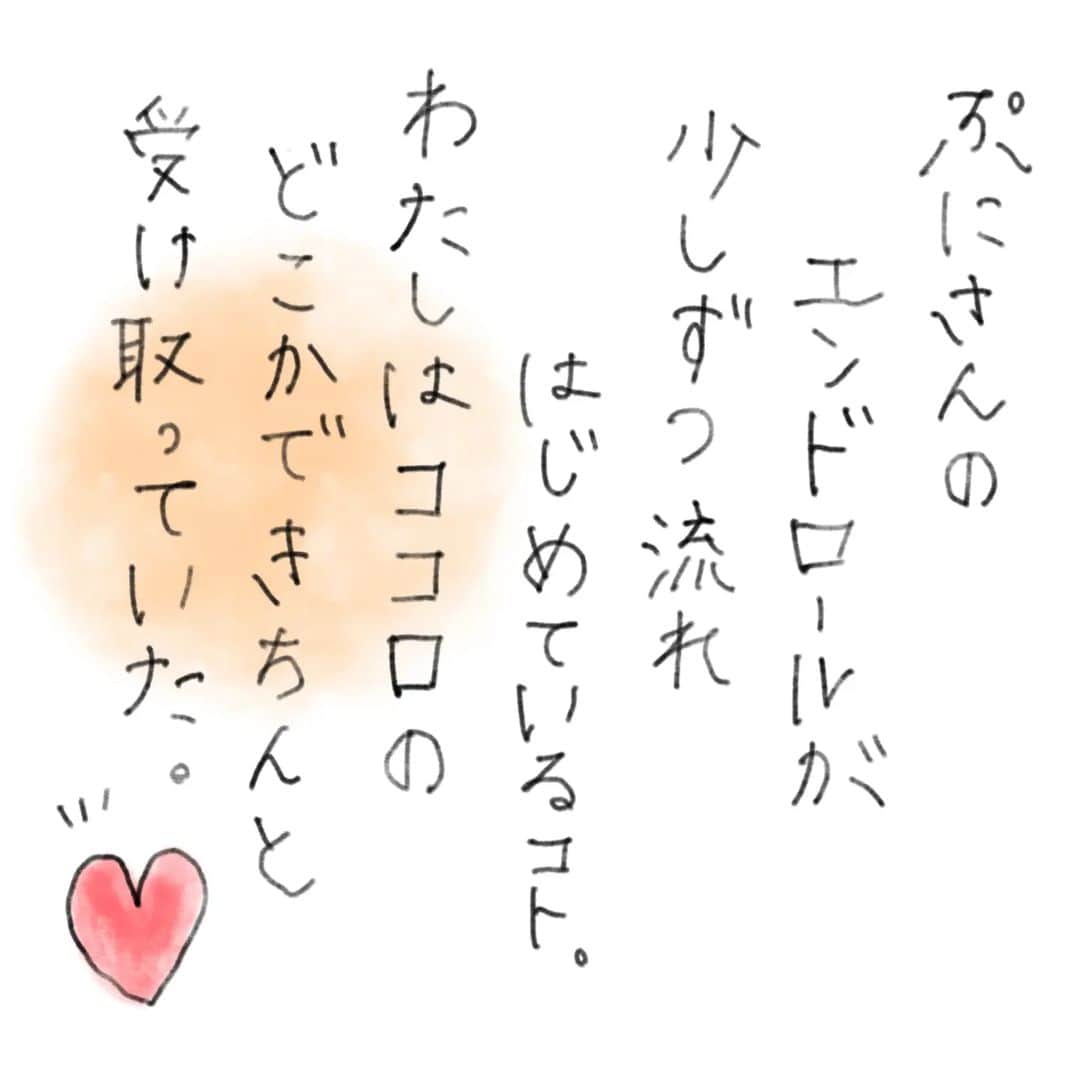 ぷにさんの
エンドロールが
少しずつ流れ
はじめているコト。
わたしはココロの
どこかできちんと
受け取っていた。